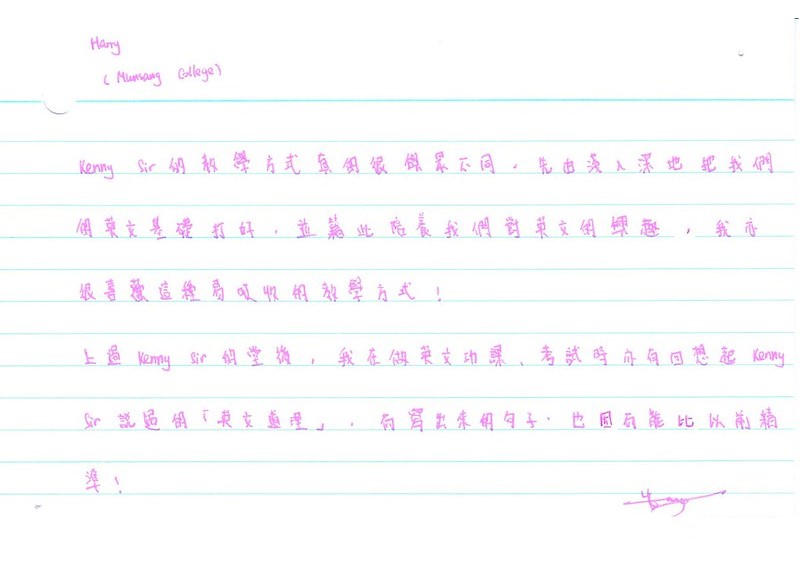 Harry
(Munsang College)
Kenny Sir 的教學方式真的很與眾不同,先由淺入深地把我們
的英文基礎打好,並藉此陪養我們對英文的興趣,我亦
很喜歡這種易吸收的教學方式!
上過 Kenny Sir 的堂後,我在做英文功課、考試時亦有回想起 Kenny
Sir 說過的「英文處理」,而寫出來的句子,也因而能比以前精
準!